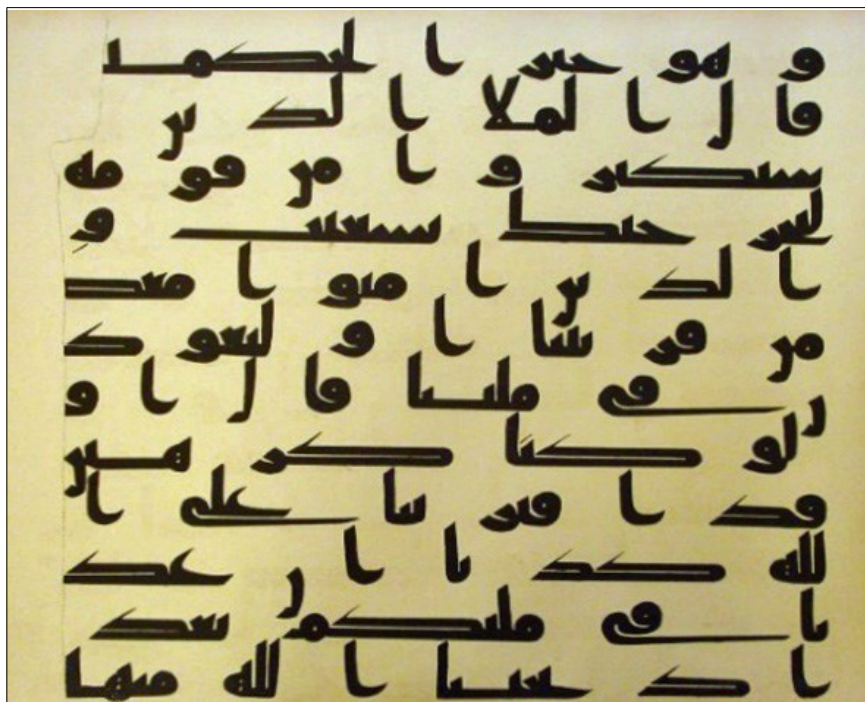 و هو خير الحكمين
قال الملا الذين
ستكبروا من قومه
لنخرجنك يشعيب و
الذين امنوا معك
من قريتنا او لتعود
ن في ملتنا قال او
لو كنا كرهين
قد افترينا على ا
لله كذبا ان عد
نا في ملتكم بعد
اذ نجينا الله منها